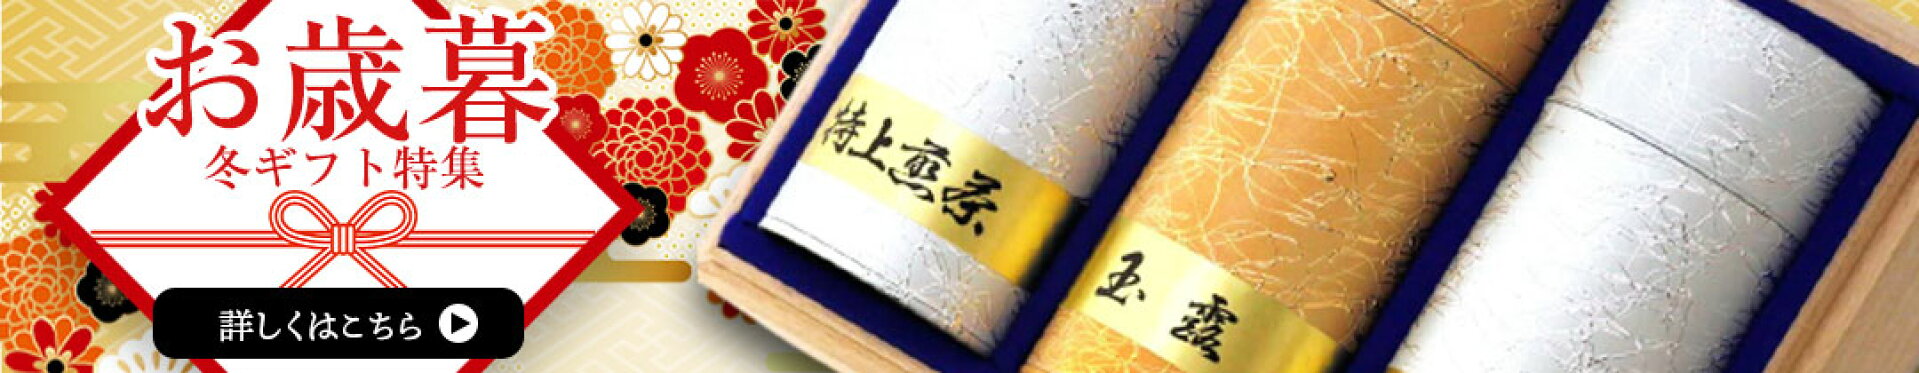 お歳暮
冬ギフト特集
詳しくはこちら
特上煎茶
玉露